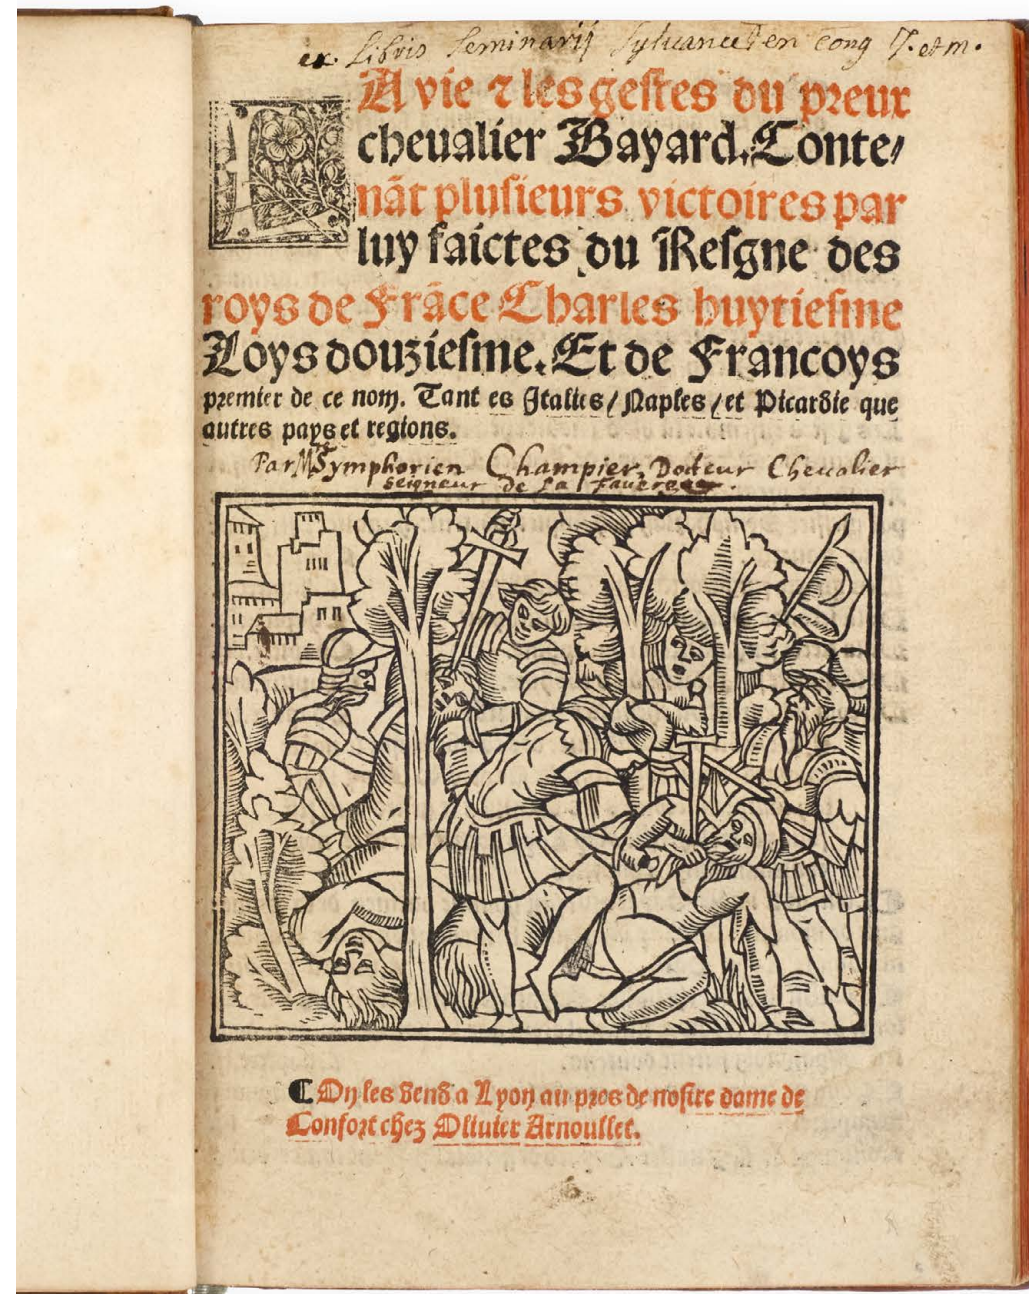 ex Libris Seminarij Sylvanecten cong J. et m.
LA vie ⁊ les gestes du preux
cheualier Bayard. Conte/
nãt plusieurs victoires par
luy faictes du Resgne des
roys de Frãce Charles huytiesme
Loys douziesme. Et de Francoys
premier de ce nom. Tant es Italies / Naples / et Picardie que
autres pays et regions.
Par M Symphorien Champier, Docteur Chevalier
seigneur de la faverge.
¶ On les vend a Lyon au pres de nostre dame de
Confort chez Olliuier Arnoullet.